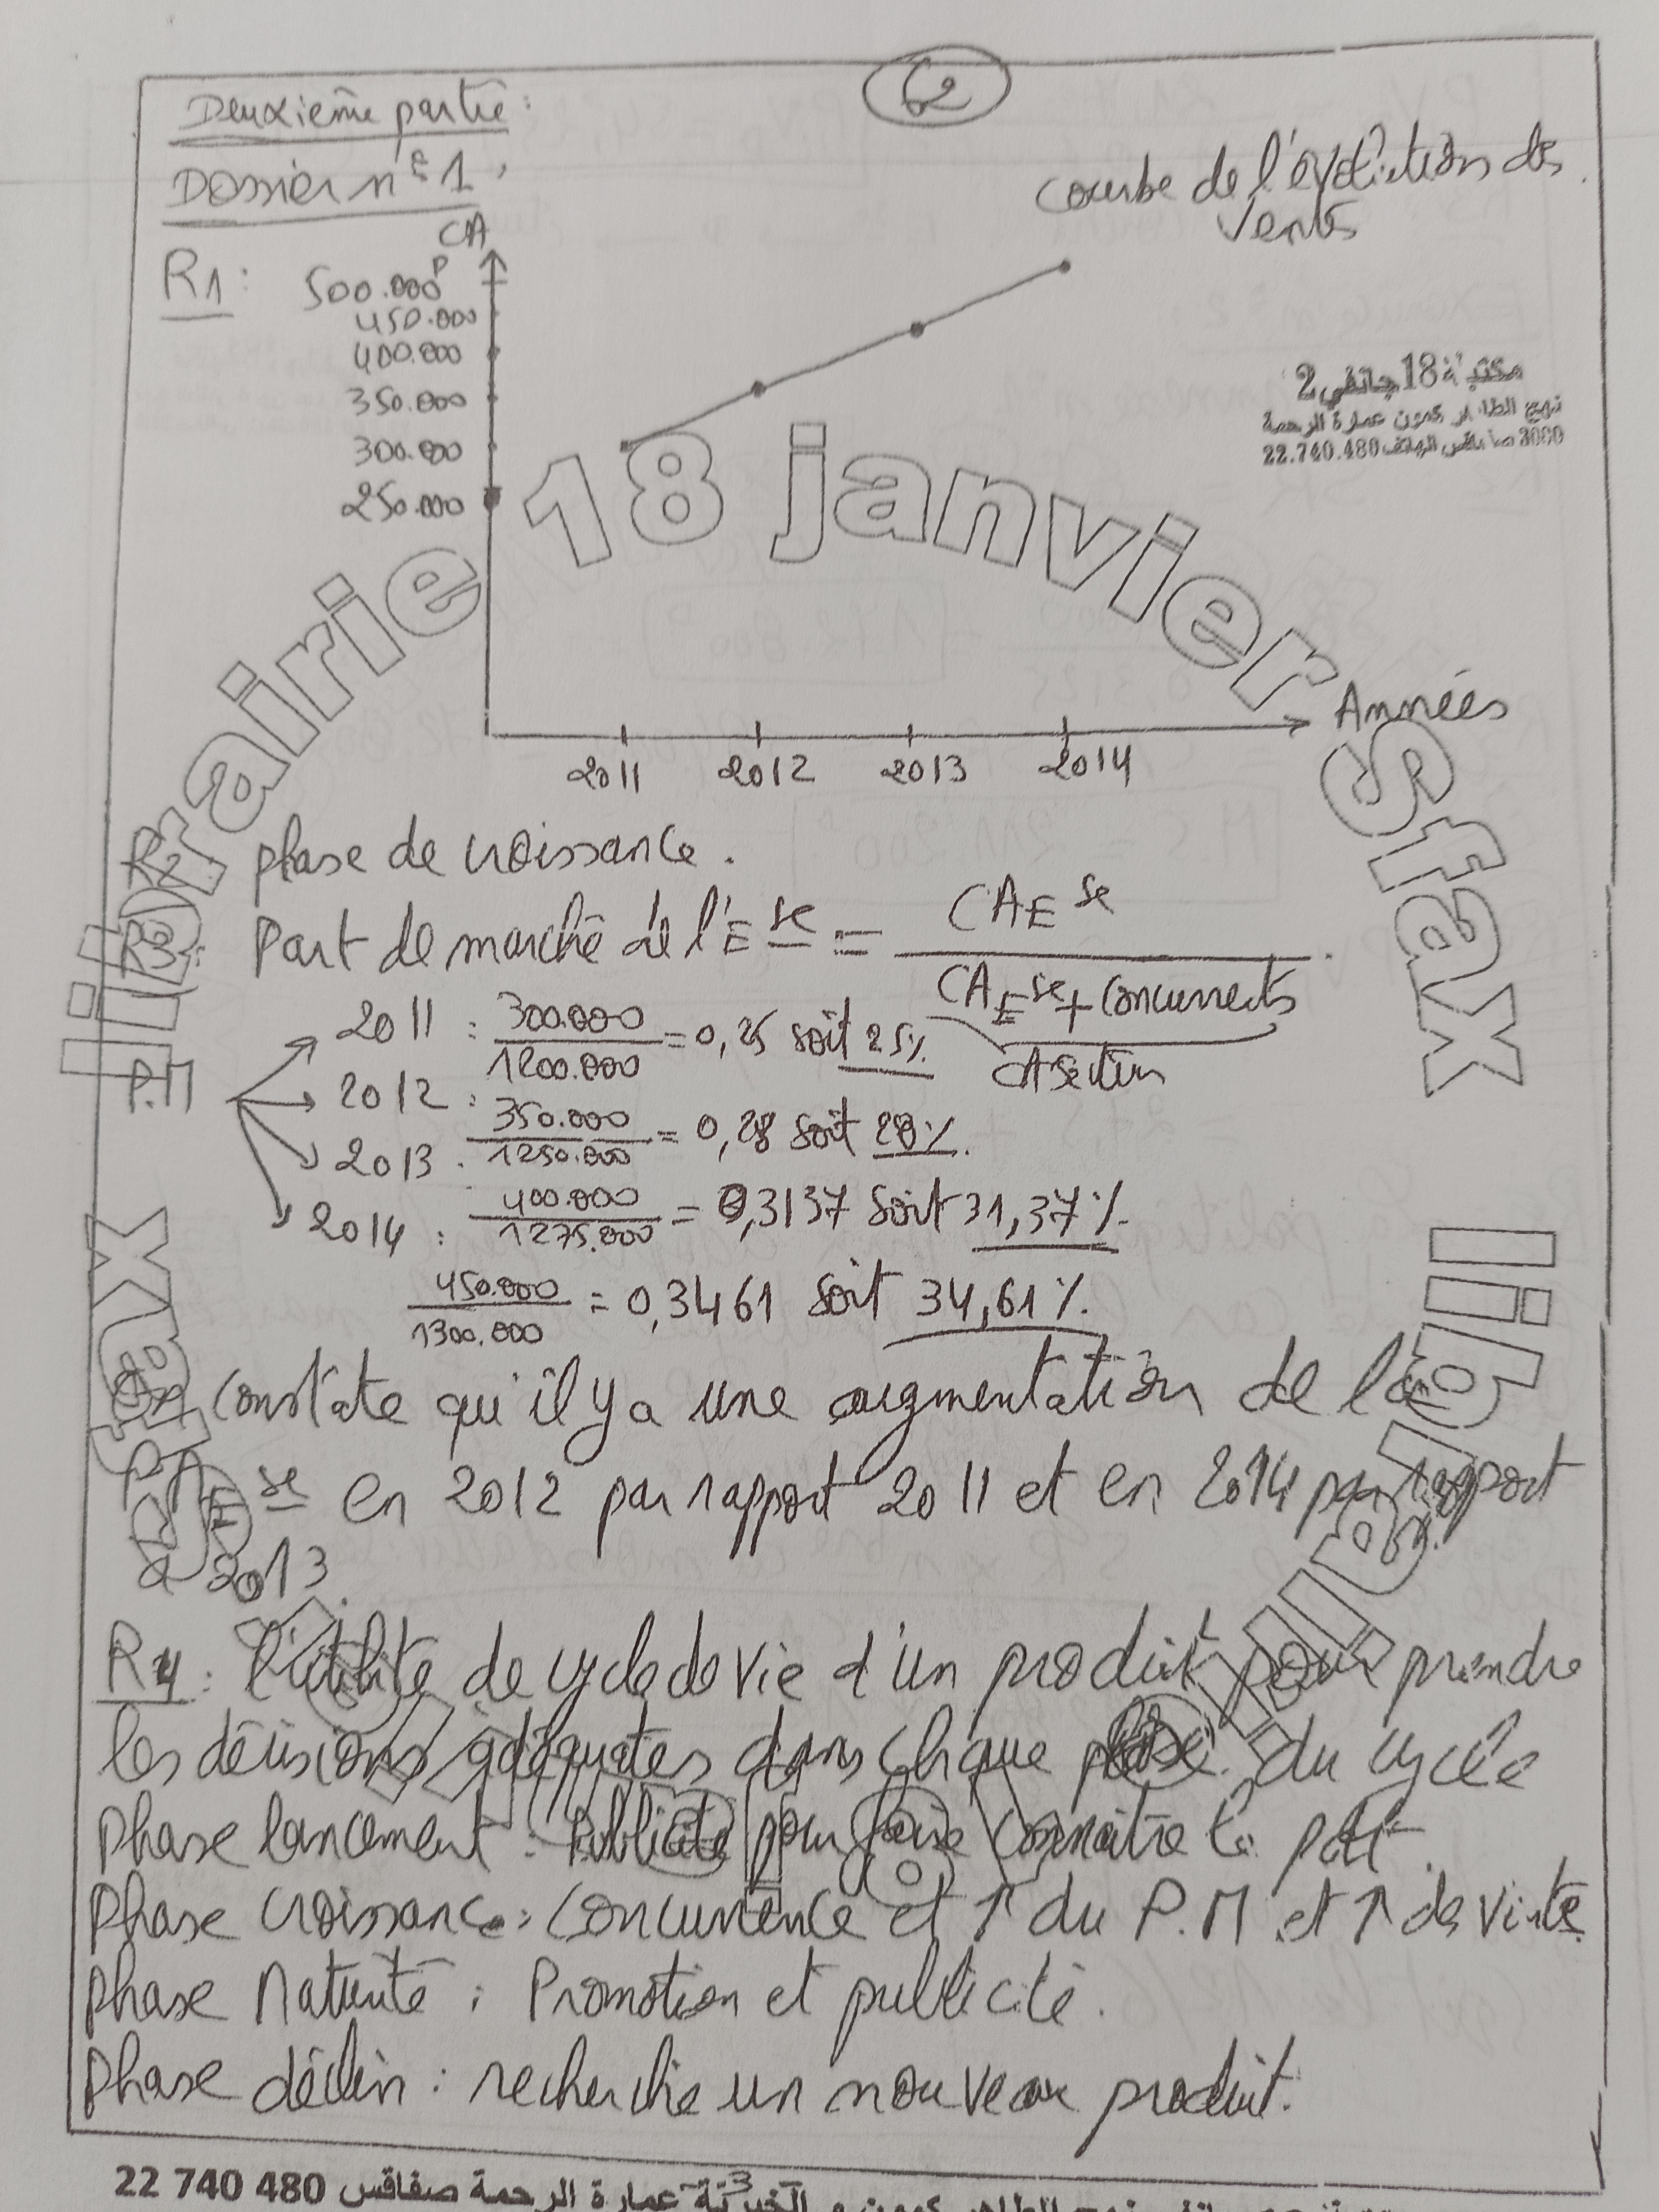 2
Deuxième partie :
Dossier n° 1 :
courbe de l'évolution des
ventes
CA
R1 :
500.000D
450.000
400.000
350.000
300.000
250.000
مكتبة 18 جانفي 2
نهج الطاهر كمون عمارة الرحمة
3000 صفاقس الهاتف 22.740.480
librairie 18 janvier Sfax
Années
2011 2012 2013 2014
R2 : phase de croissance.
R3 : Part de marché de l'Ese = CAEse / CAEse + concurrents
CA secteur
P.M
2011 : 300.000 / 1200.000 = 0,25 soit 25%
2012 : 350.000 / 1250.000 = 0,28 soit 28%.
2013 : 400.000 / 1275.000 = 0,3137 soit 31,37%.
2014 : 450.000 / 1300.000 = 0,3461 soit 34,61%.
On constate qu'il y a une augmentation de la
en 2012 par rapport 2011 et en 2014 par rapport
à 2013.
R4 : l'utilité de cycle de vie d'un produit pour prendre
les décisions adéquates dans chque phase du cycle
Phase lancement : Publicité pour faire connaître le pdt.
Phase croissance : concurrence et ↑ du P.M et ↑ des vente
Phase Maturité : Promotion et publicité.
Phase déclin : recherche un nouveau produit.
librairie
Sfax
3
عمارة الرحمة صفاقس 22 740 480